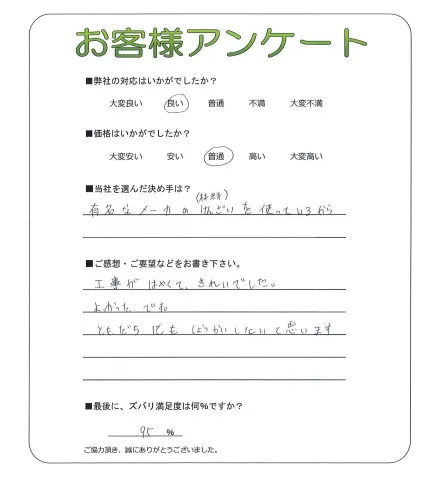 お客様アンケート
■弊社の対応はいかがでしたか？
大変良い 良い 普通 不満 大変不満
■価格はいかがでしたか？
大変安い 安い 普通 高い 大変高い
■当社を選んだ決め手は？
(材料)
有名なメーカのけんざいを使っているから
■ご感想・ご要望などをお書き下さい。
工事がはやくて、きれいでした。
よかったです。
ともだちにもしょうかいしたいと思います
■最後に、ズバリ満足度は何%ですか？
95 %
ご協力頂き、誠にありがとうございました。